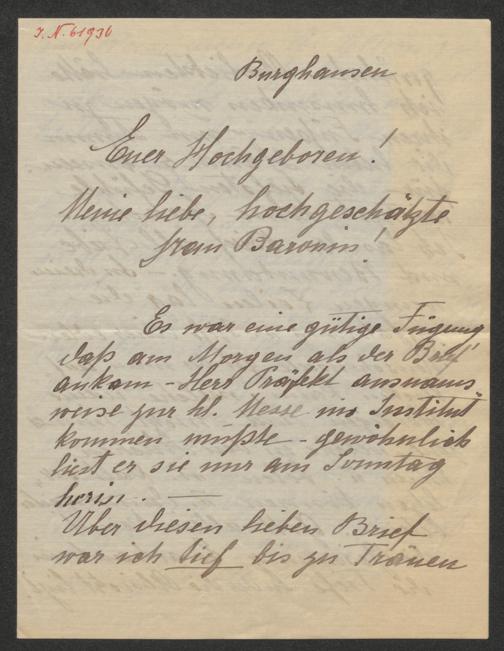 J. N. 61936
Burghausen
Euer Hochgeboren!
Meine liebe, hochgeschätzte
Frau Baronin!
Es war eine gütige Fügung
daß am Morgen als der Brief
ankam - Herr Präfekt ausnams
weise zur hl. Messe ins Institut
kommen mußte - gewöhnlich
liest er sie nur am Sonntag
herin. —
Über diesen lieben Brief
war ich tief bis zu Tränen